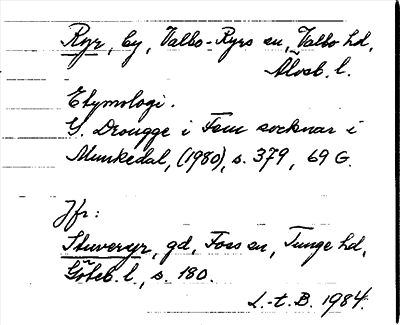 Ryr, by, Valbo-Ryrs sn, Valbo hd,
Älvsb. l.
Etymologi.
G. Drougge i Fem socknar i
Munkedal, (1980), s. 379, 69 G.
Jfr:
Stuveryr, gd, Foss sn, Tunge hd,
Göteb. l., s. 180.
L.-t. B. 1984.